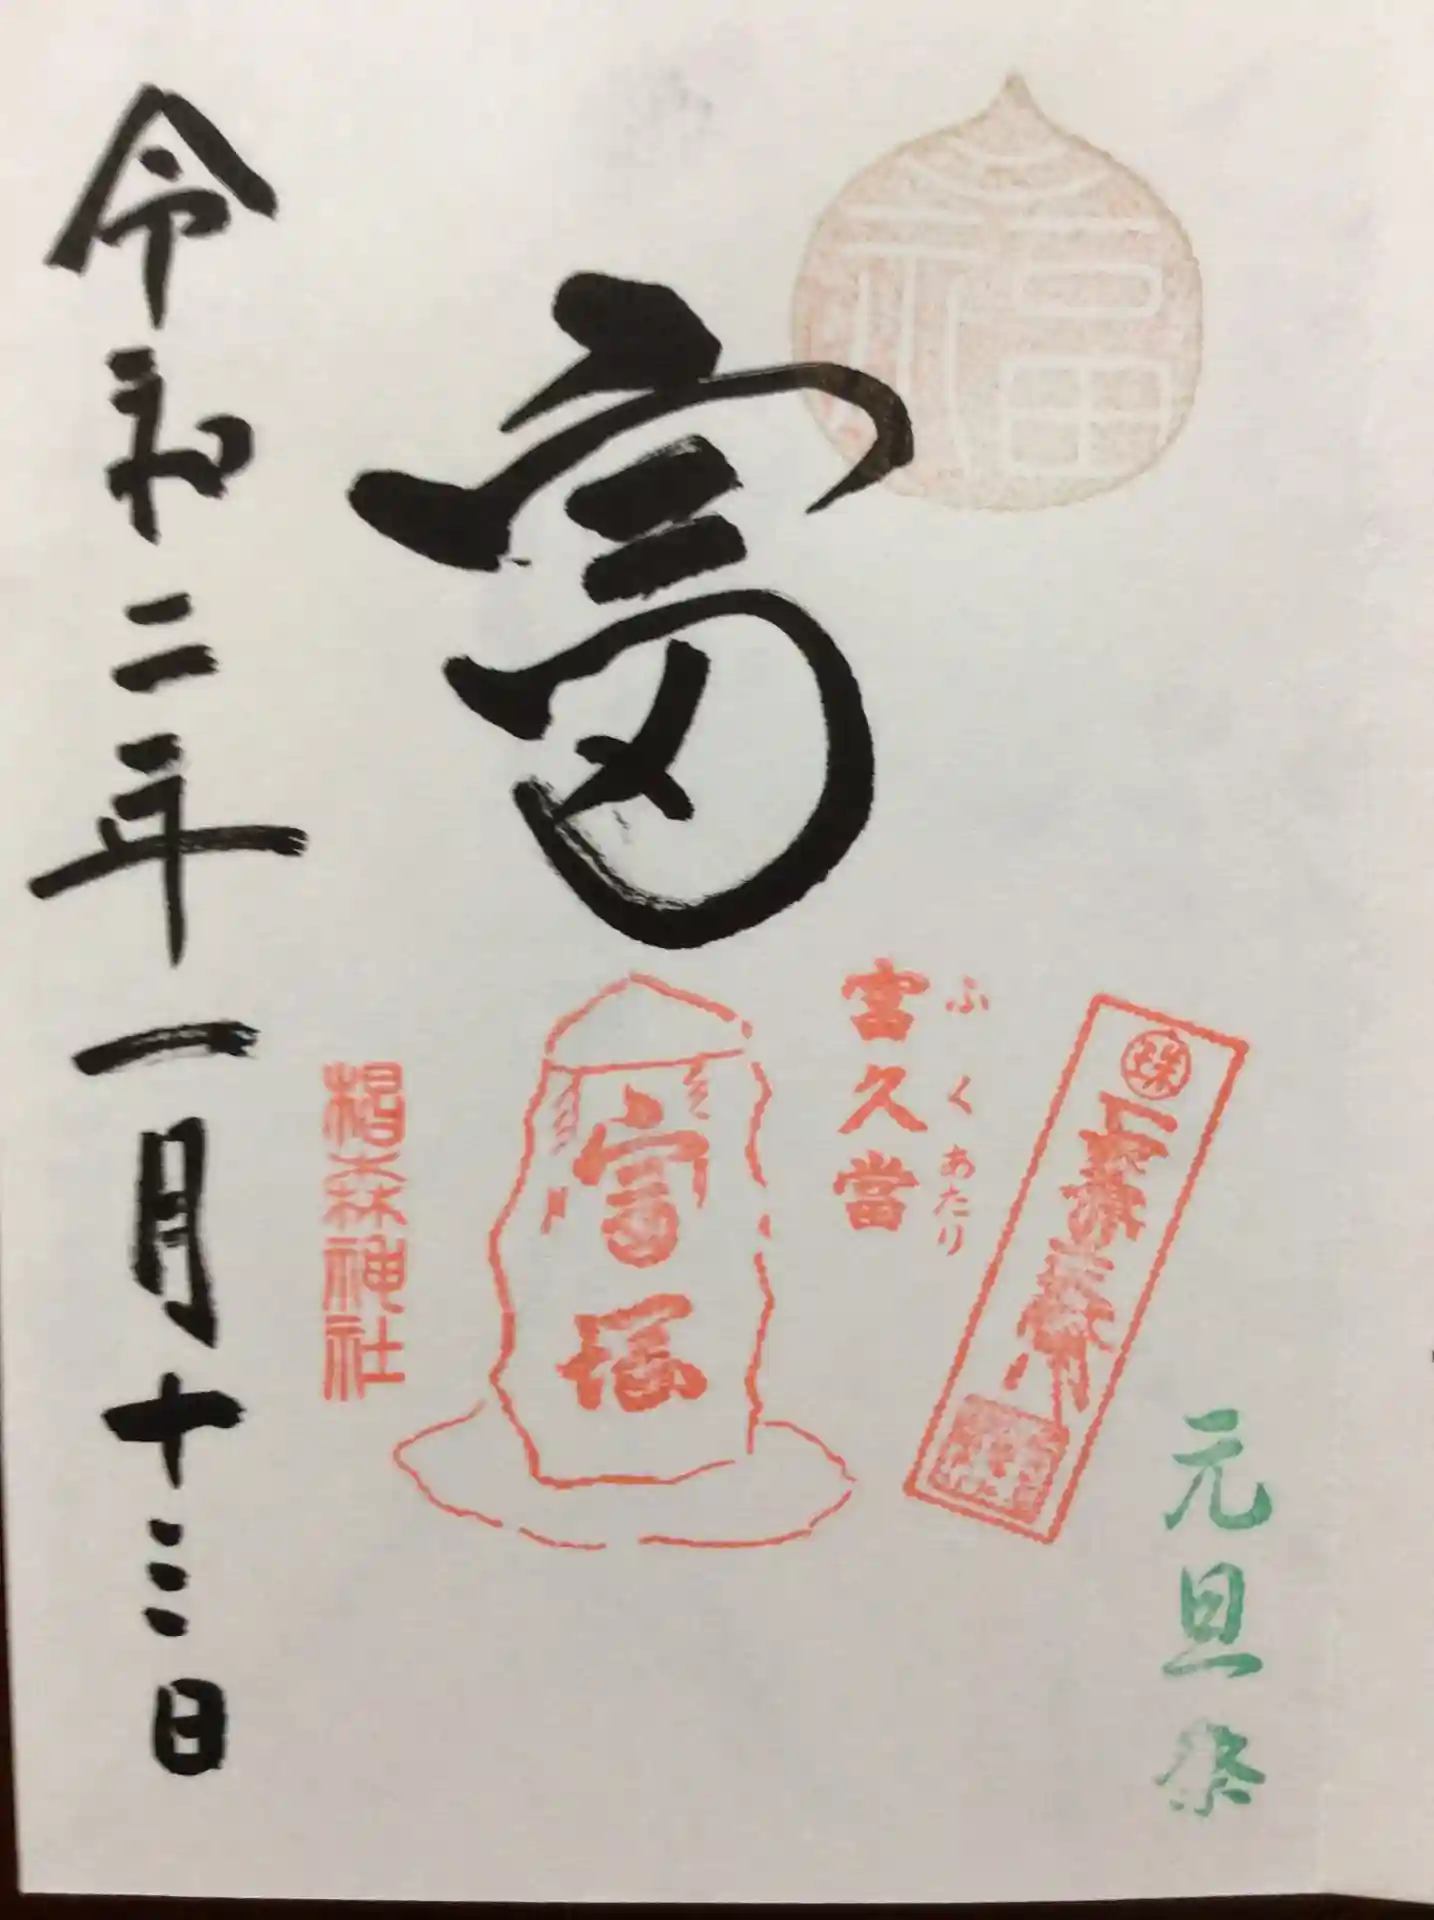 福
元旦祭
ふくあたり
富久當
富
富福
椙森神社
令和二年一月十三日